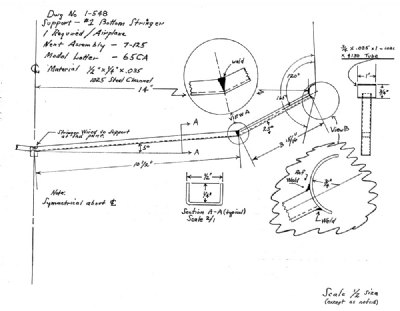 Dwg No 1-548
Support - #1 Bottom Stringer
1 Required / Airplane
Next Assembly - 7-125
Model Letter - 65CA
Material 1/2" x 1/4" x .035
1025 Steel Channel
14"
Weld
View A
120°
1"
3/4"
View B
Stringer Wired to Support
at this point.
A
A
5°
10 1/2"
Note:
Symmetrical about ℄
1/2"
1/4"
Section A-A (typical)
Scale 2/1
Ref
Weld
Weld
Scale 1/2 Size
(except as noted)